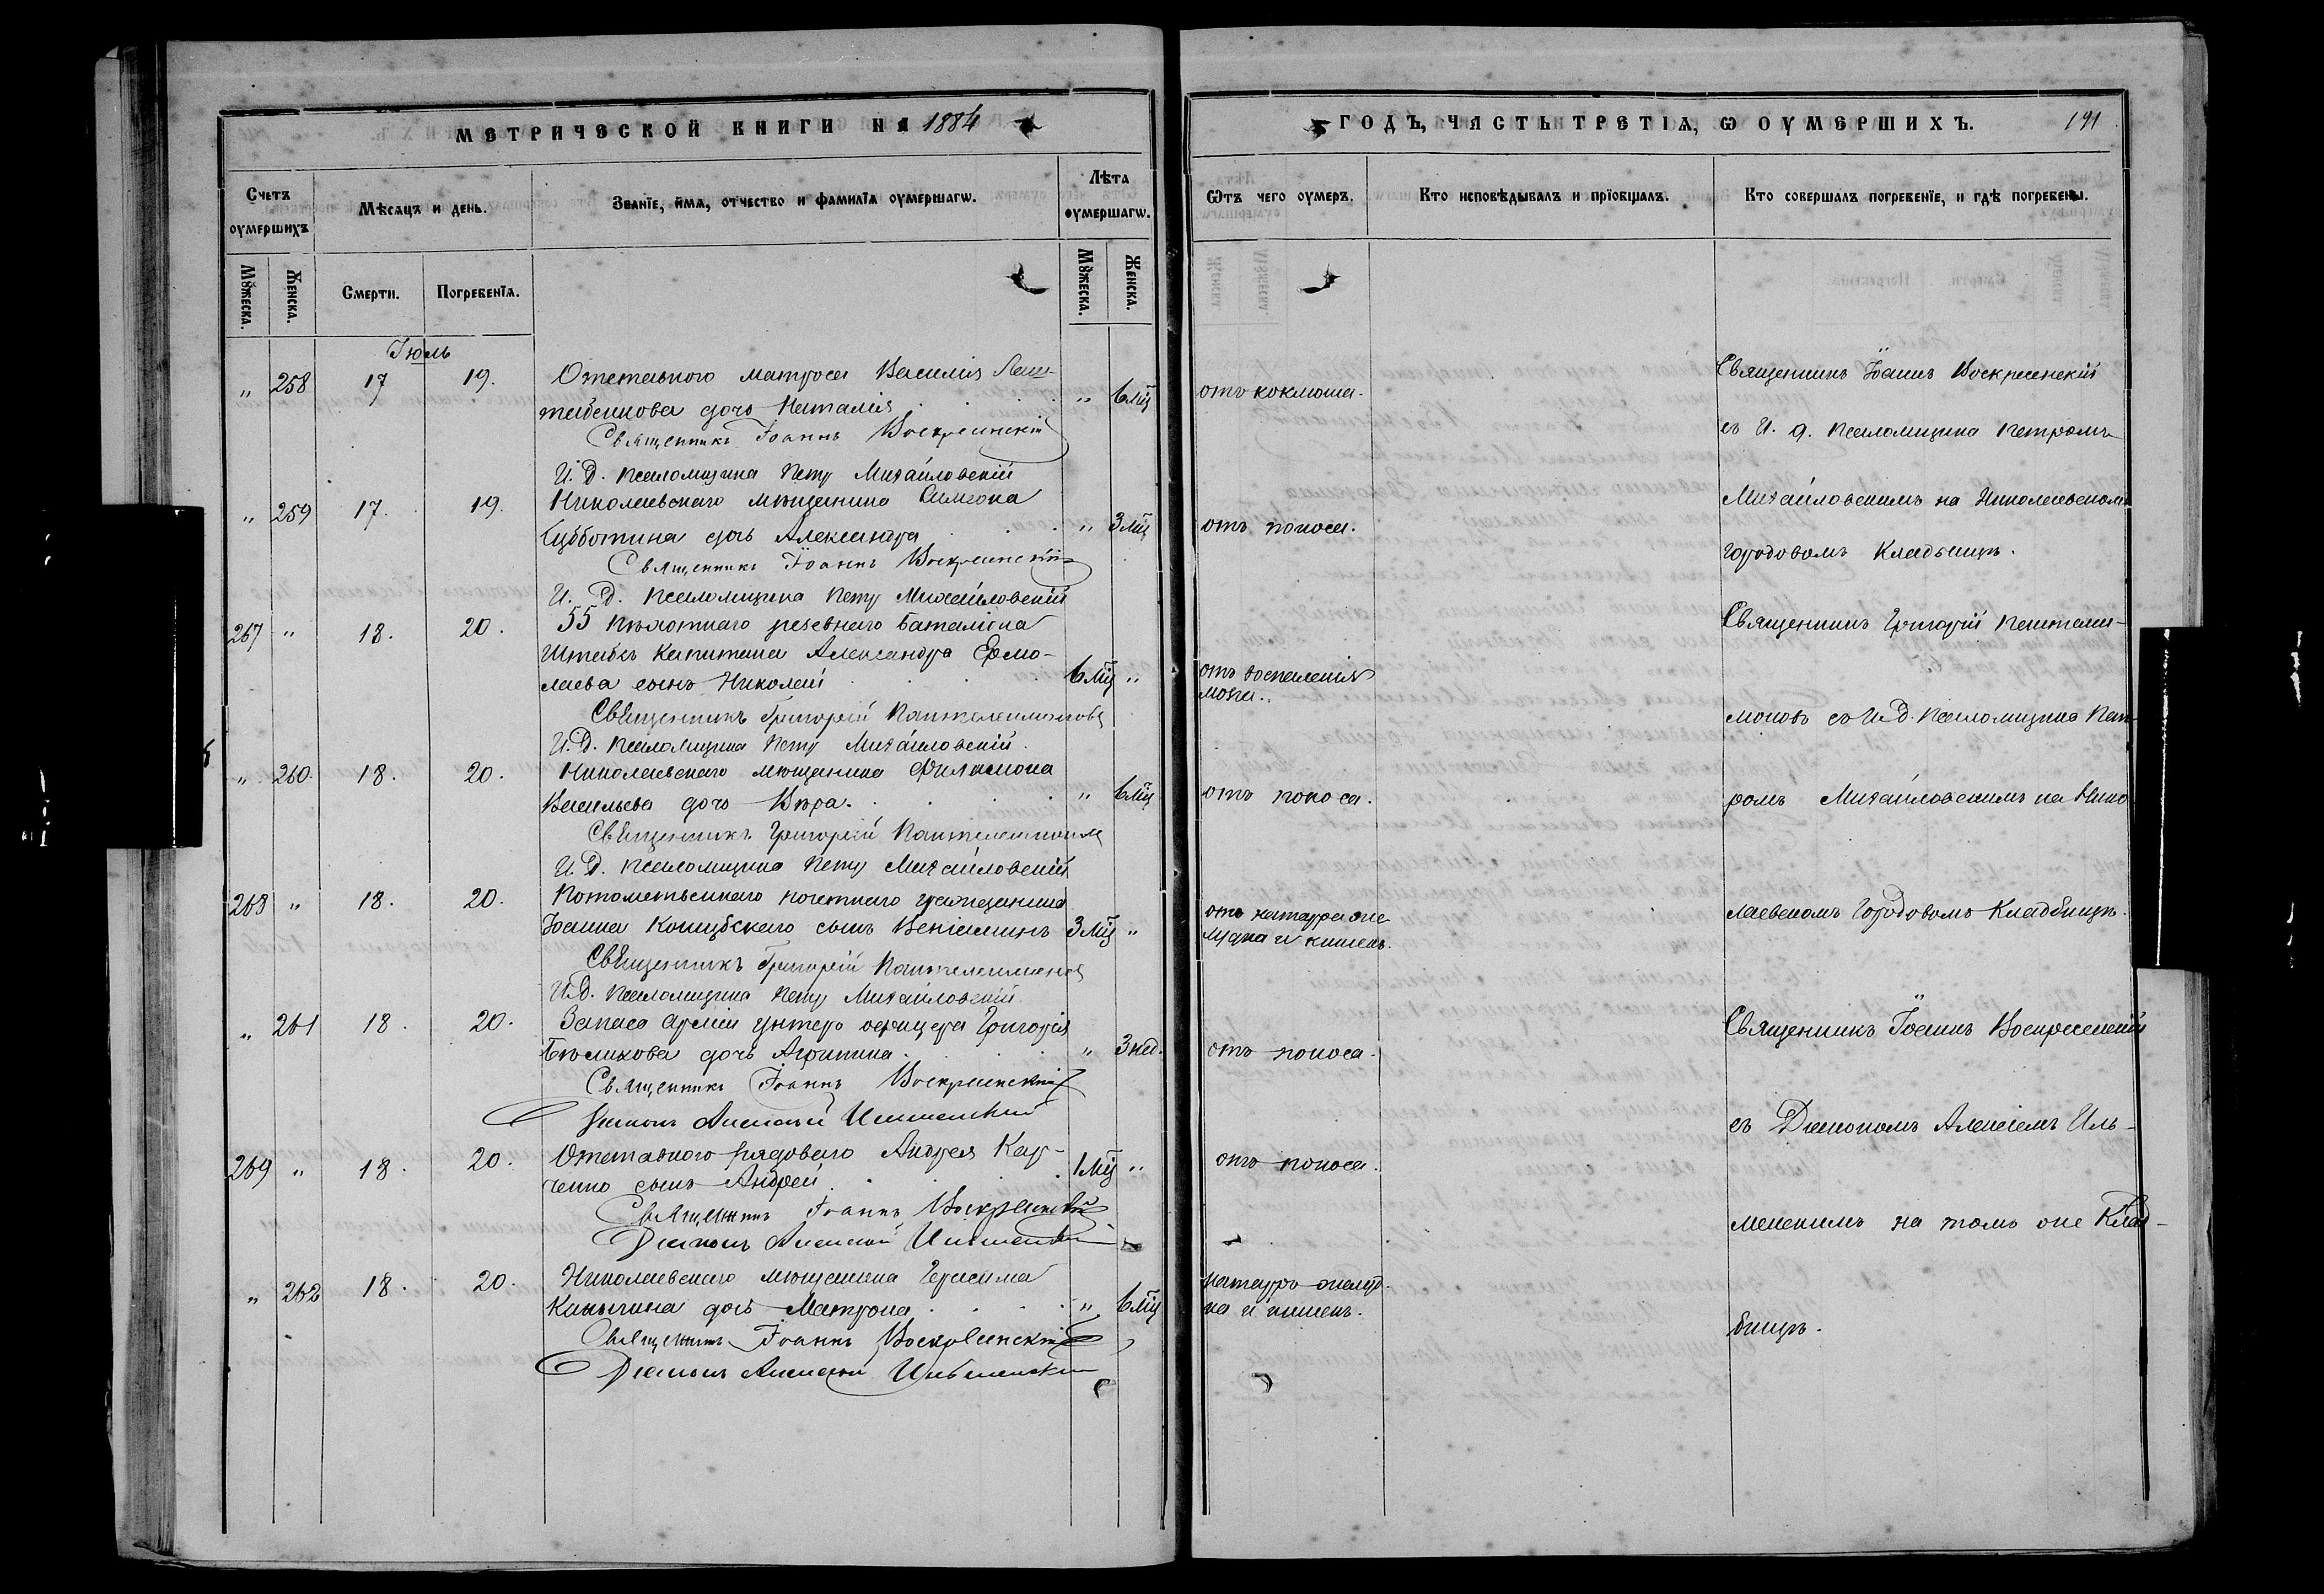 МЕТРИЧЕСКОЙ КНИГИ НА 1884
Счетъ оумершихъ
Мѣсяцъ и день.
Званїе, имя, отчество и фамилїя оумершагѡ.
Лѣта оумершагѡ.
Мꙋжеска.
Женска.
Смерти.
Погребенїя.
Мꙋжеска.
Женска.
Іюль
" 258 17 19. Отставного матроса Василія
дочь Наталія " 6 мц
Священникъ Іоаннъ Воскресенскій
И. Д. Псаломщика Петръ Михайловскій
" 259 17. 19. Николаевскаго мѣщанина Симеона
Субботина дочь Александра " 3 мц
Священникъ Іоаннъ Воскресенскій
И. Д. Псаломщика Петръ Михайловскій
267 " 18. 20. 55 Пѣхотнаго резевнаго баталіона
Штабсъ Капитана Александра Ермо-
лаева сынъ Николай 6 мц "
Священникъ Григорій Пантелеимоновъ
И. Д. Псаломщика Петръ Михайловскій.
" 260. 18. 20. Николаевскаго мѣщанина Филимона
Васильева дочь Вѣра. " 6 мц
Священникъ Григорій Пантелеимоновъ
И. Д. Псаломщика Петръ Михайловскій
268 " 18. 20. Потомственнаго почетнаго гражданина
Іоанна Коницбскаго сынъ Веніаминъ 3 мц "
Священникъ Григорій Пантелеимоновъ
И. Д. Псаломщика Петръ Михайловскій
" 261 18. 20. Запаса арміи унтеръ офицера Григорія
Бѣликова дочь Агрипина. " 3 нед.
Священникъ Іоаннъ Воскресенскій
Діаконъ Алексѣй Ильменскій
269 " 18. 20. Отставного рядоваго Андрея Кар-
ченко сынъ Андрей 1 мц "
Священникъ Іоаннъ Воскресенскій
Діаконъ Алексѣй Ильменскій
" 262 18. 20. Николаевскаго мѣщанина Герасима
Каныгина дочь Матрона " 6 мц
Священникъ Іоаннъ Воскресенскій
Діаконъ Алексѣй Ильменскій
ГОДЪ, ЧАСТЬ ТРЕТІЯ, Ѡ ОУМЕРШИХЪ. 191
Ѿтъ чего оумеръ.
Кто исповѣдывалъ и прїобщалъ.
Кто совершалъ погребенїе, и гдѣ погребены.
отъ коклюша.
отъ поноса.
отъ воспаленія
мозга.
отъ поноса.
отъ катарра же-
лудка и кишекъ.
отъ поноса.
отъ поноса.
катарръ желуд-
ка и кишекъ.
Священникъ Іоаннъ Воскресенскій
съ И. д. Псаломщика Петромъ
Михайловскимъ на Николаевскомъ
городовомъ кладбищѣ.
Священникъ Григорій Пантелеи-
моновъ съ И. Д. Псаломщика Пет-
ромъ Михайловскимъ на Нико-
лаевскомъ Городовомъ Кладбищѣ.
Священникъ Іоаннъ Воскресенскій
съ Діакономъ Алексіемъ Иль-
менскимъ на томъ же Клад-
бищѣ.